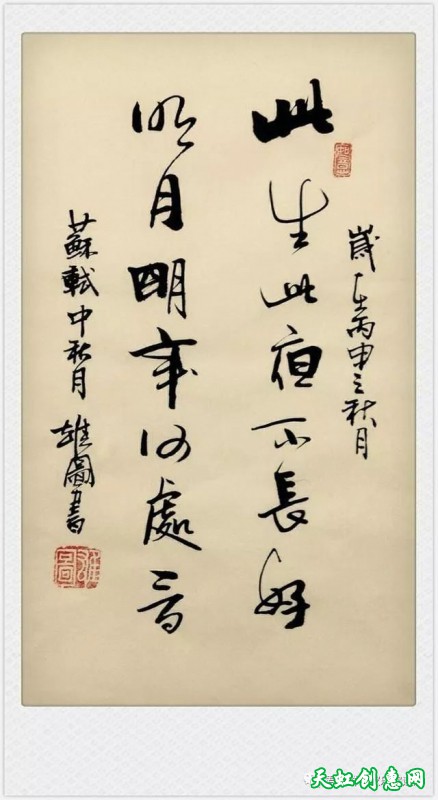 歲在丙申之秋月
此生此夜不長好
明月明年何處看
蘇軾中秋月 雄圖書
天虹创惠网